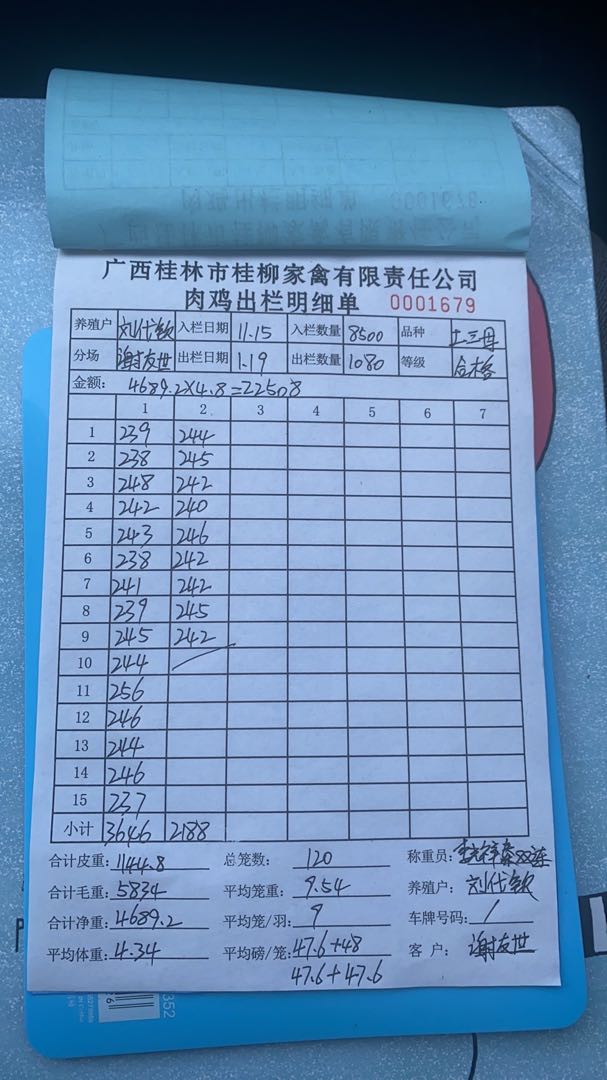 广西桂林市桂柳家禽有限责任公司
肉鸡出栏明细单 0001679
养殖户 刘代钦 入栏日期 11.15 入栏数量 8500 品种 土三母
分场 谢友世 出栏日期 1.19 出栏数量 1080 等级 合格
金额： 4689.2×4.8=22508
1 2 3 4 5 6 7
1 239 244
2 238 245
3 248 242
4 242 240
5 243 246
6 238 242
7 241 242
8 239 245
9 245 242
10 244
11 256
12 246
13 244
14 246
15 237
小计 3646 2188
合计皮重： 1144.8 总笼数： 120 称重员：
合计毛重： 5834 平均笼重： 9.54 养殖户： 刘代钦
合计净重： 4689.2 平均笼/羽： 9 车牌号码： /
平均体重： 4.34 平均磅/笼： 47.6+48 客 户： 谢友世
47.6+47.6